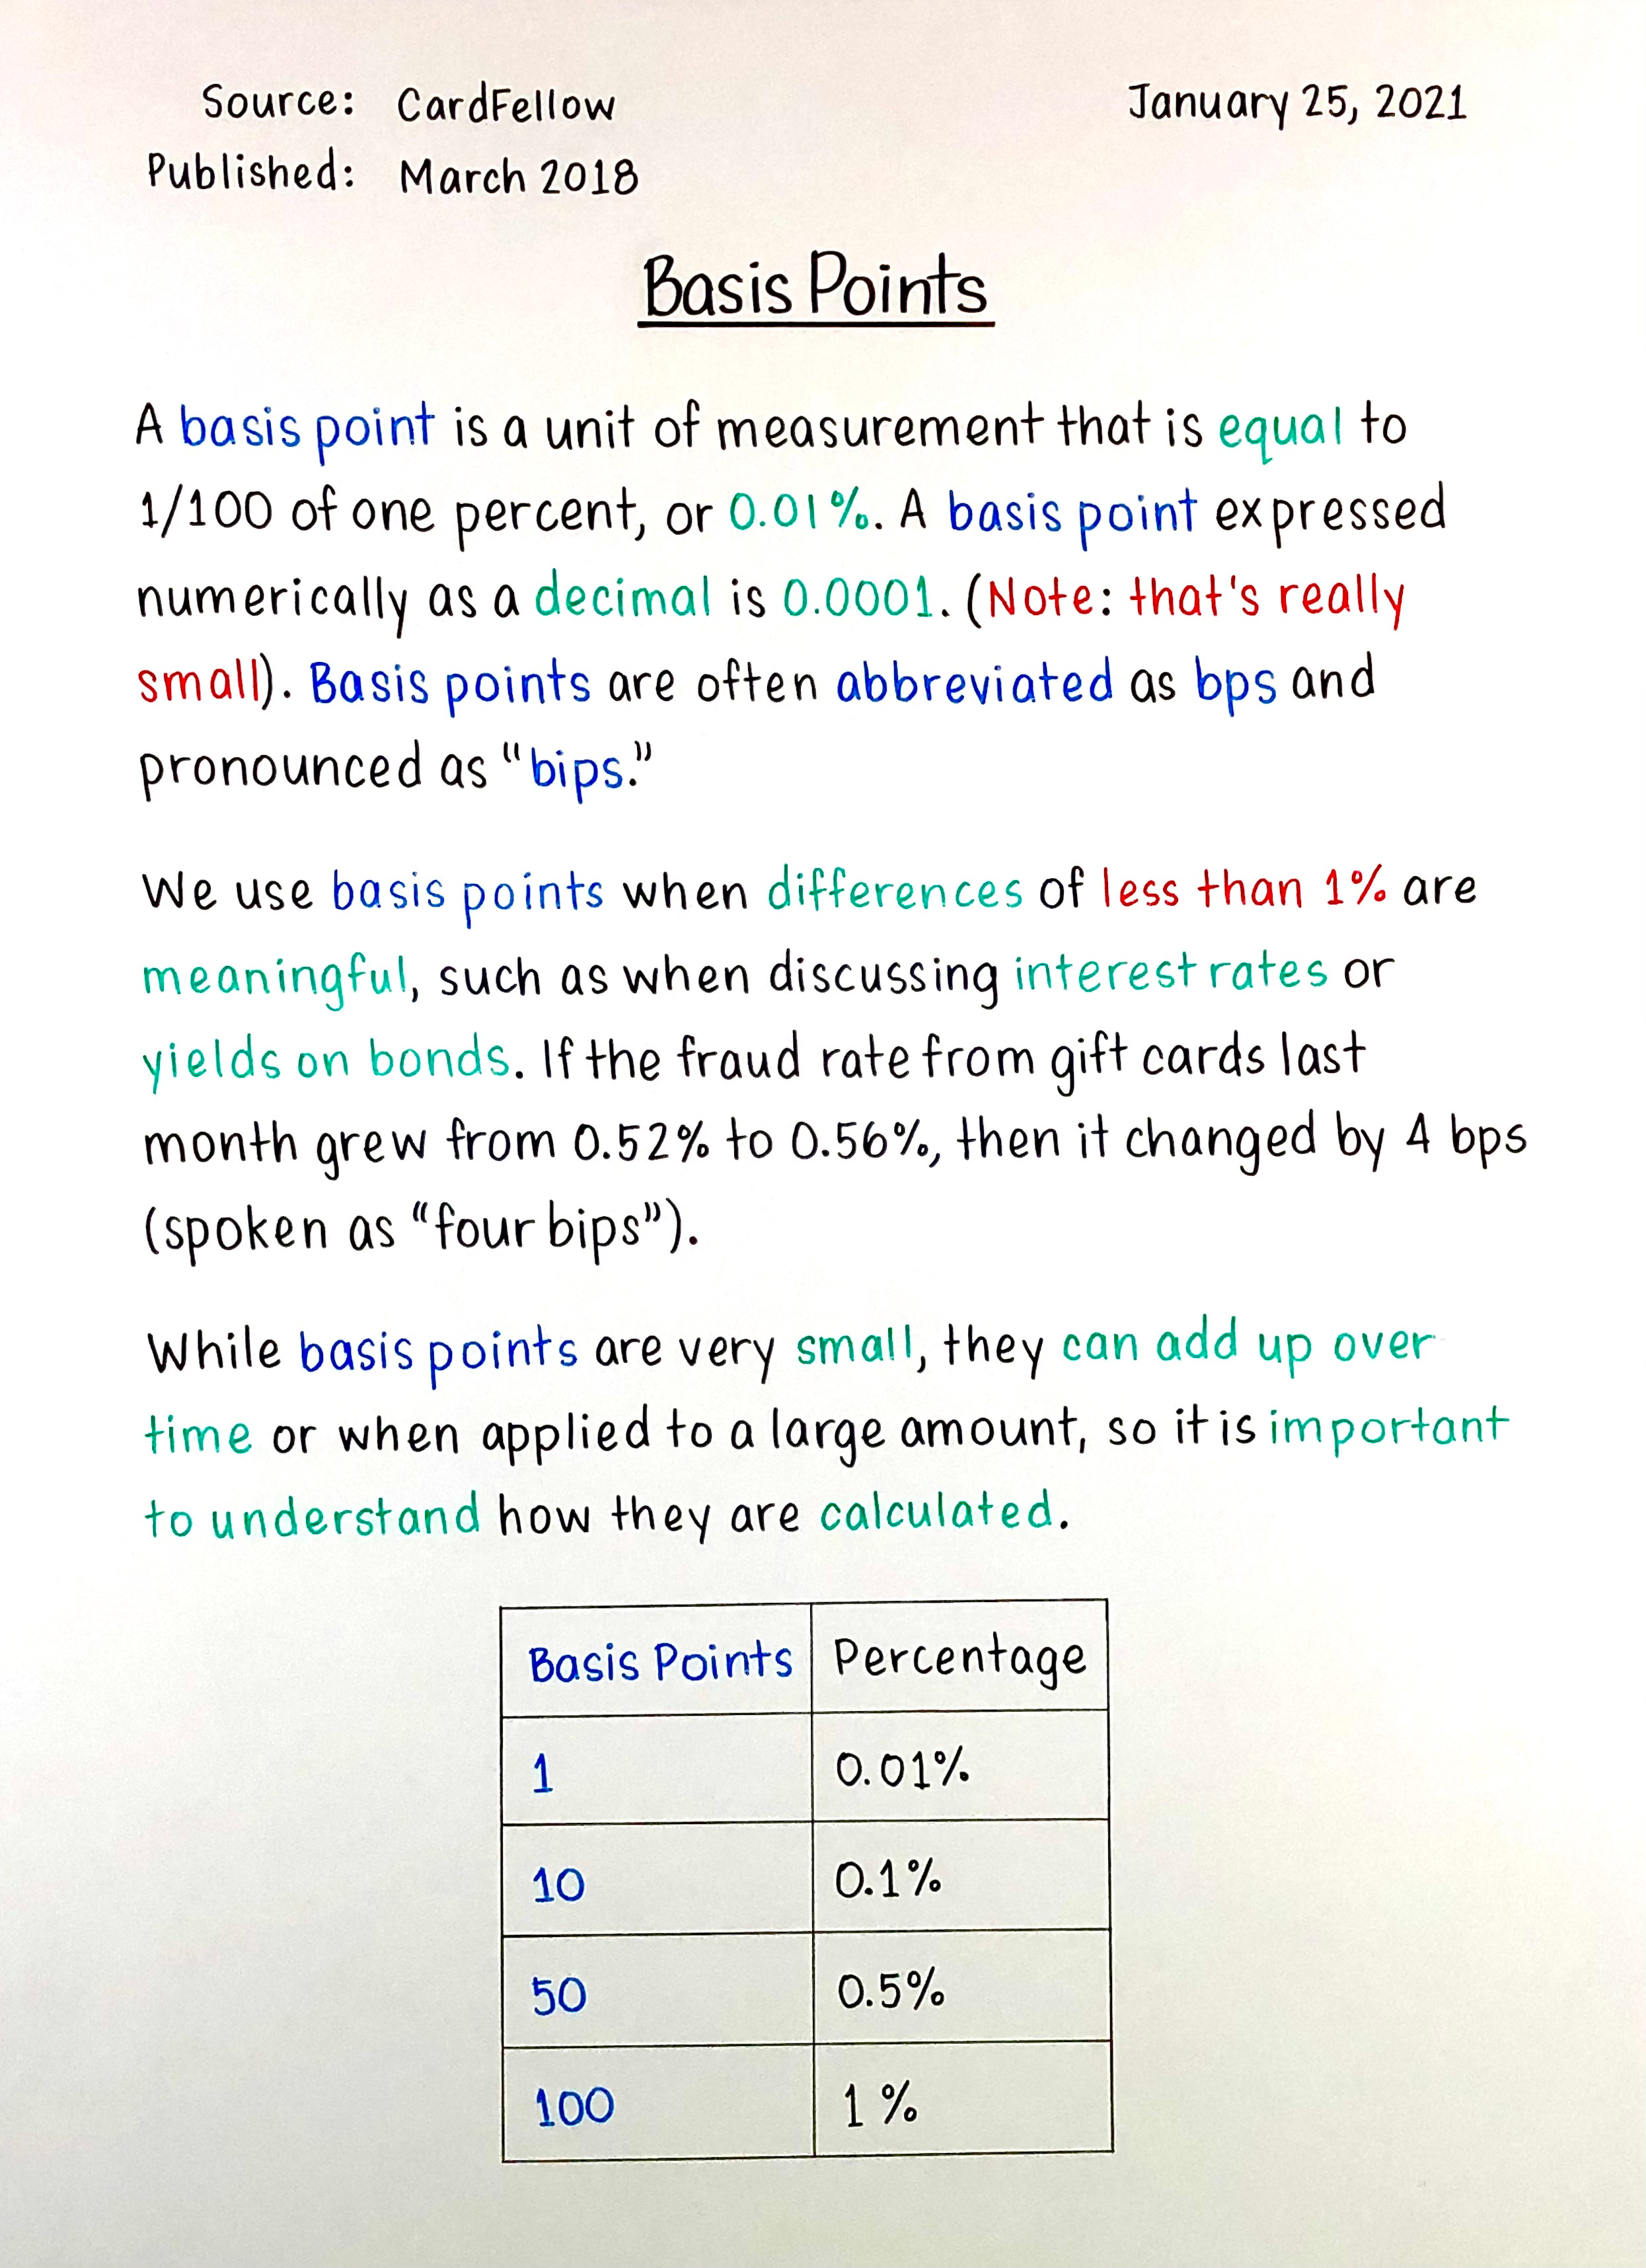 Source: CardFellow
January 25, 2021
Published: March 2018
Basis Points
A basis point is a unit of measurement that is equal to
1/100 of one percent, or 0.01%. A basis point expressed
numerically as a decimal is 0.0001. (Note: that's really
small). Basis points are often abbreviated as bps and
pronounced as "bips."
We use basis points when differences of less than 1% are
meaningful, such as when discussing interest rates or
yields on bonds. If the fraud rate from gift cards last
month grew from 0.52% to 0.56%, then it changed by 4 bps
(spoken as "four bips").
While basis points are very small, they can add up over
time or when applied to a large amount, so it is important
to understand how they are calculated.
Basis Points Percentage
1 0.01%
10 0.1%
50 0.5%
100 1%